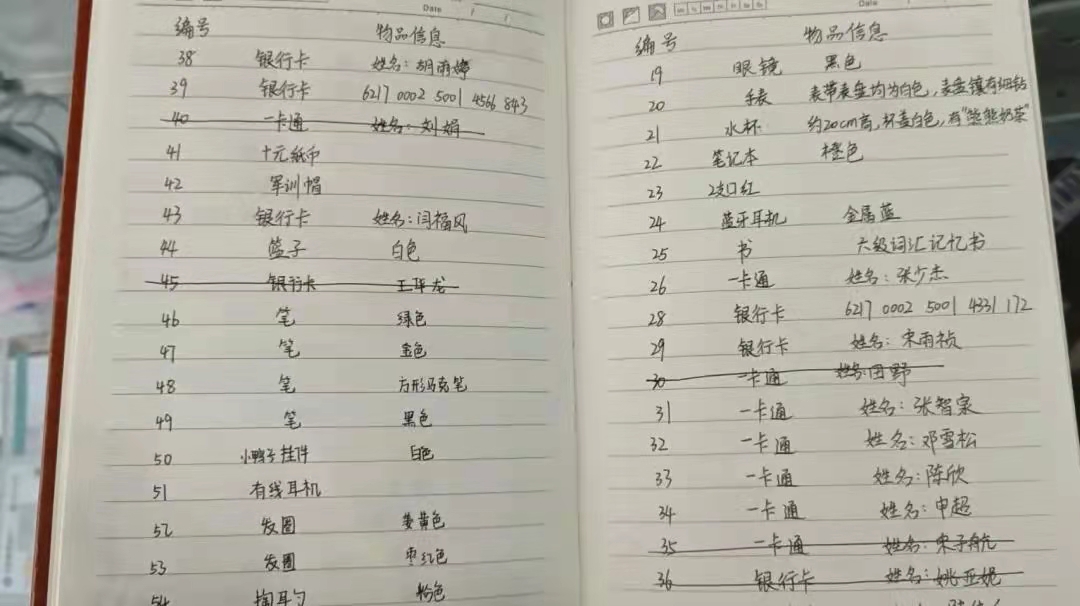 Date
编号 物品信息
38 银行卡 姓名：胡雨婷
39 银行卡 6217 0002 5001 4566 843
40 一卡通 姓名：刘娟
41 十元纸币
42 军训帽
43 银行卡 姓名：闫福风
44 篮子 白色
45 银行卡 王华龙
46 笔 绿色
47 笔 金色
48 笔 方形马克笔
49 笔 黑色
50 小鸭子挂件 白色
51 有线耳机
52 发圈 姜黄色
53 发圈 枣红色
54 掏耳勺 粉色
Date
编号 物品信息
19 眼镜 黑色
20 手表 表带表盘均为白色，表盘镶有细钻
21 水杯 约20cm高，杯盖白色，有“熊熊奶茶”
22 笔记本 橙色
23 2支口红
24 蓝牙耳机 金属蓝
25 书 六级词汇记忆书
26 一卡通 姓名：张少杰
28 银行卡 6217 0002 5001 4331 172
29 银行卡 姓名：宋雨祯
30 一卡通 姓名：田野
31 一卡通 姓名：张智家
32 一卡通 姓名：邓雪松
33 一卡通 姓名：陈欣
34 一卡通 姓名：申超
35 一卡通 姓名：宋子航
36 银行卡 姓名：姚亚妮